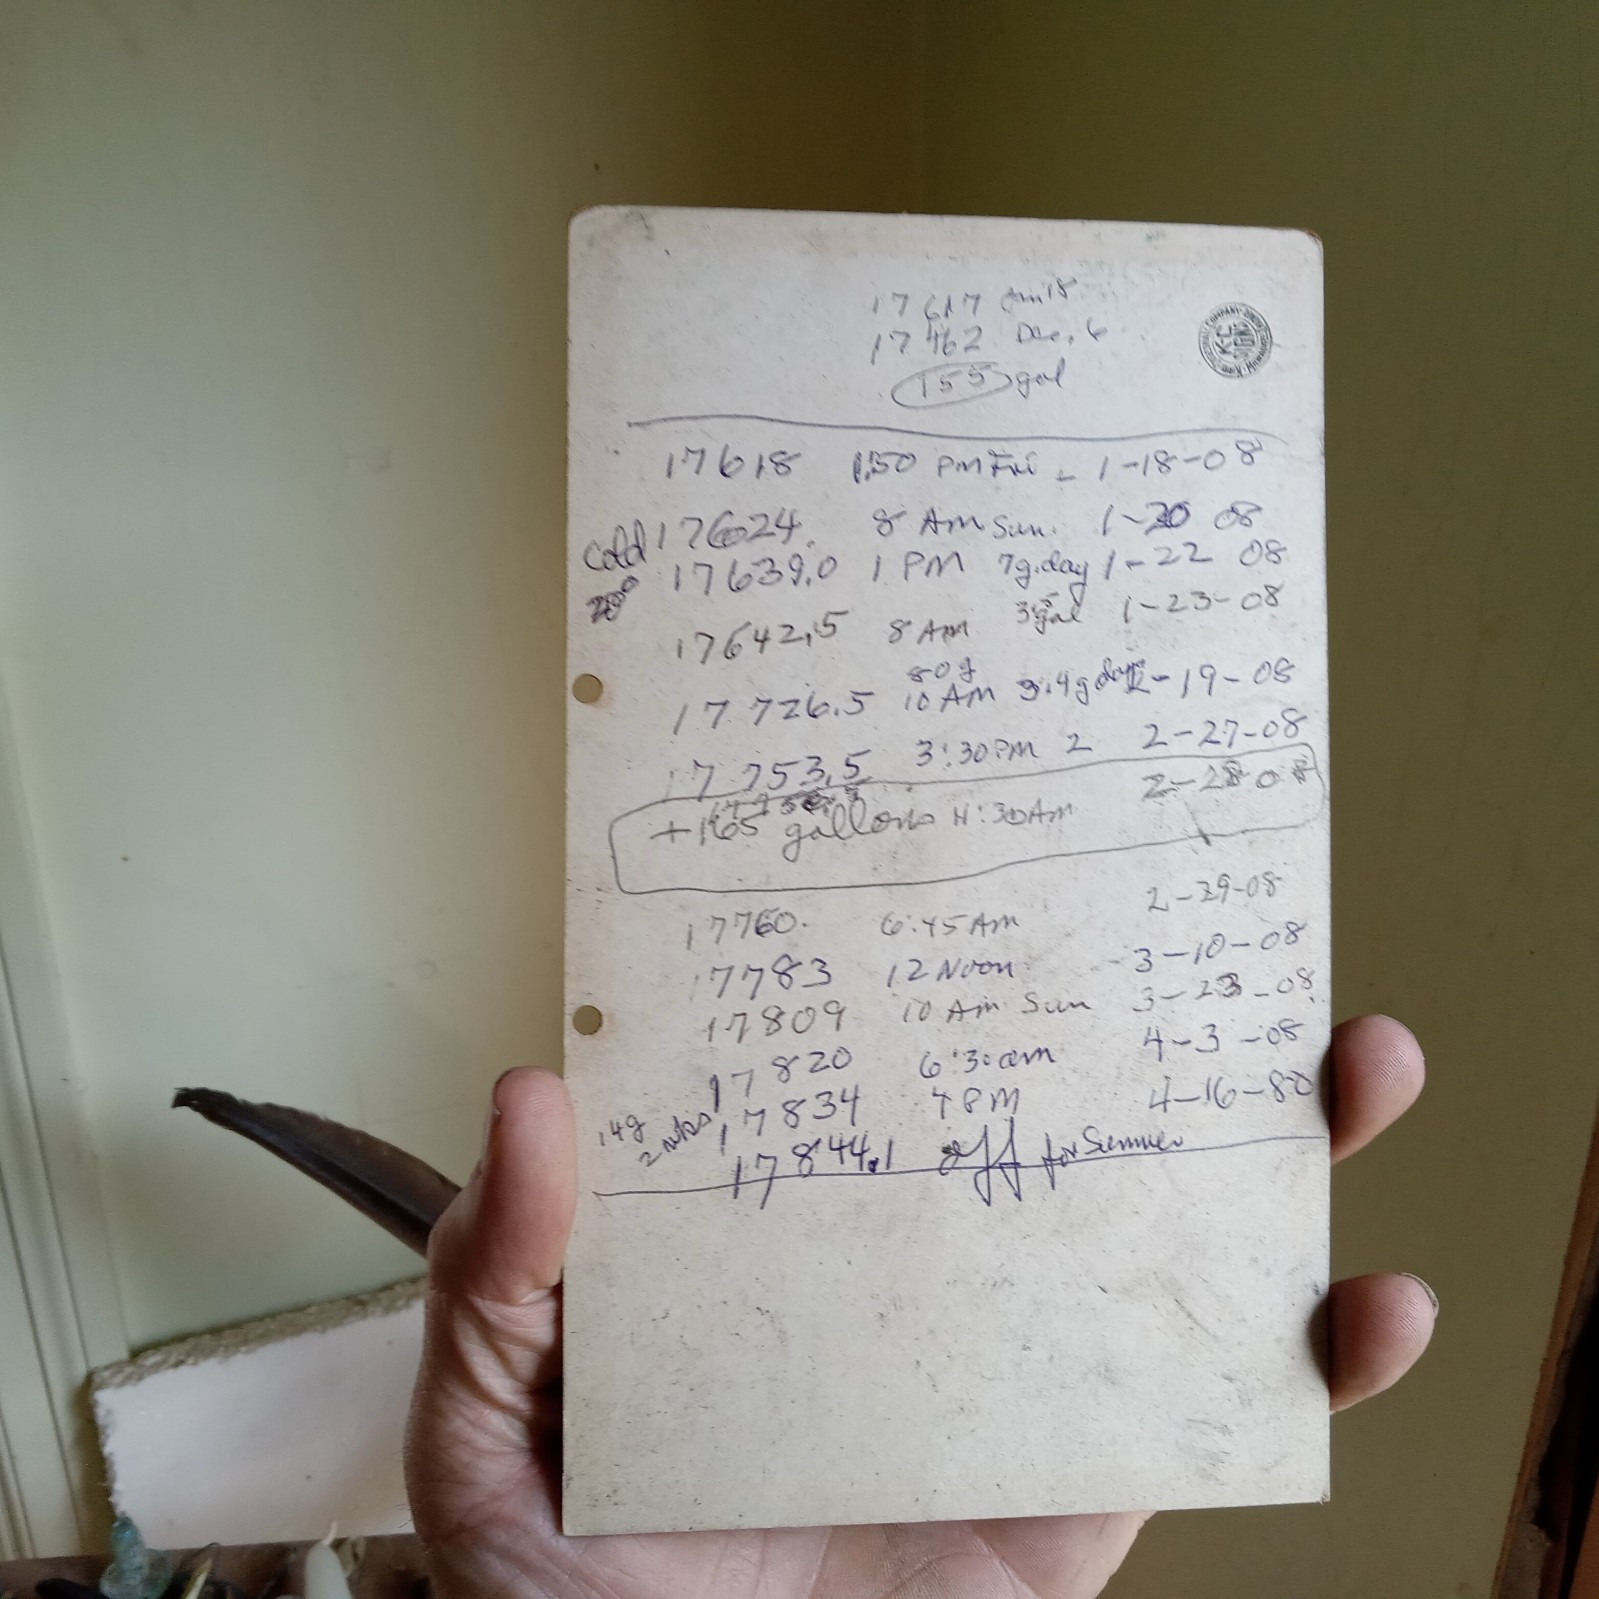 17617 Jan 18
17462 Dec. 6
155 gal
K-C
17618 1:50 PM Fri - 1-18-08
17624. 8 AM Sun. 1-20 08
cold 17639.0 1 PM 7g.day 1-22 08
20°
17642.5 8 AM 3.5 gal 1-23-08
80g
17 726.5 10 AM 3.4g day 2-19-08
17 753.5 3:30 PM 2 2-27-08
+165 gallons 11:30 AM 2-28 08
17760. 6:45 AM 2-29-08
17783 12 Noon 3-10-08
17809 10 Am Sun 3-23-08
17 820 6:30 am 4-3-08
14g 17834 4 PM 4-16-80
17 844.1 off for Summer